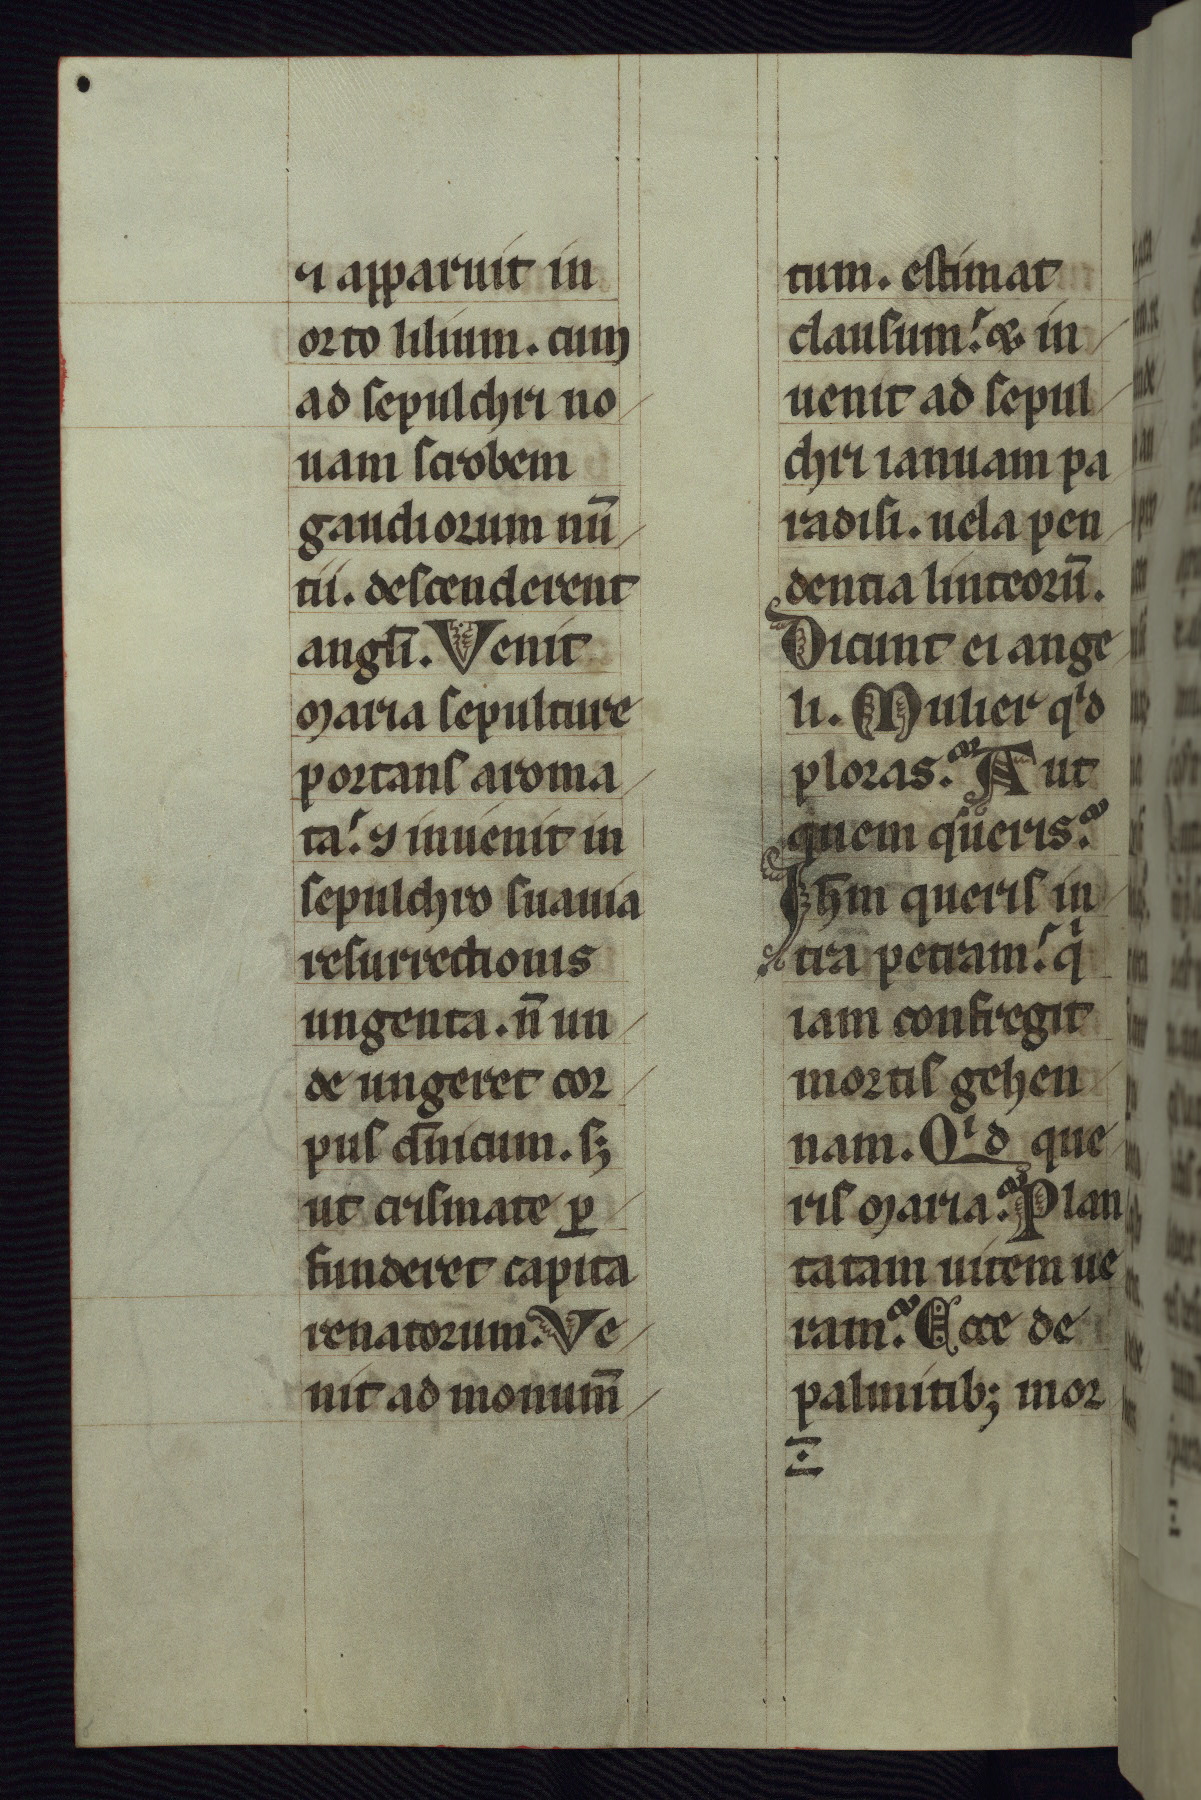 ⁊ apparuit in
orto lilium. cum
ad sepulchri no
uam scrobem
gaudiorum nū
tii. descenderent
angl̄i. Venit
maria sepulture
portans aroma
ta. ⁊ inuenit in
sepulchro suauia
resurrectionis
ungenta. n̄ un
de ungeret cor
pus dn̄icum. sꝫ
ut crismate ꝑ
funderet capita
renatorum. Ve
nit ad monum̄
tum. estimat
clausum. & in
uenit ad sepul
chri ianuam pa
radisi. uela pen
dentia linteorū.
Dicunt ei ange
li. Mulier qͥd
ploras? Aut
quem queris?
Ihm̄ queris in
tra petram. qͥ
iam confregit
mortis gehen
nam. Qͥd que
ris maria? Plan
tatam uitem ue
ram? Ecce de
palmitibꝫ mor